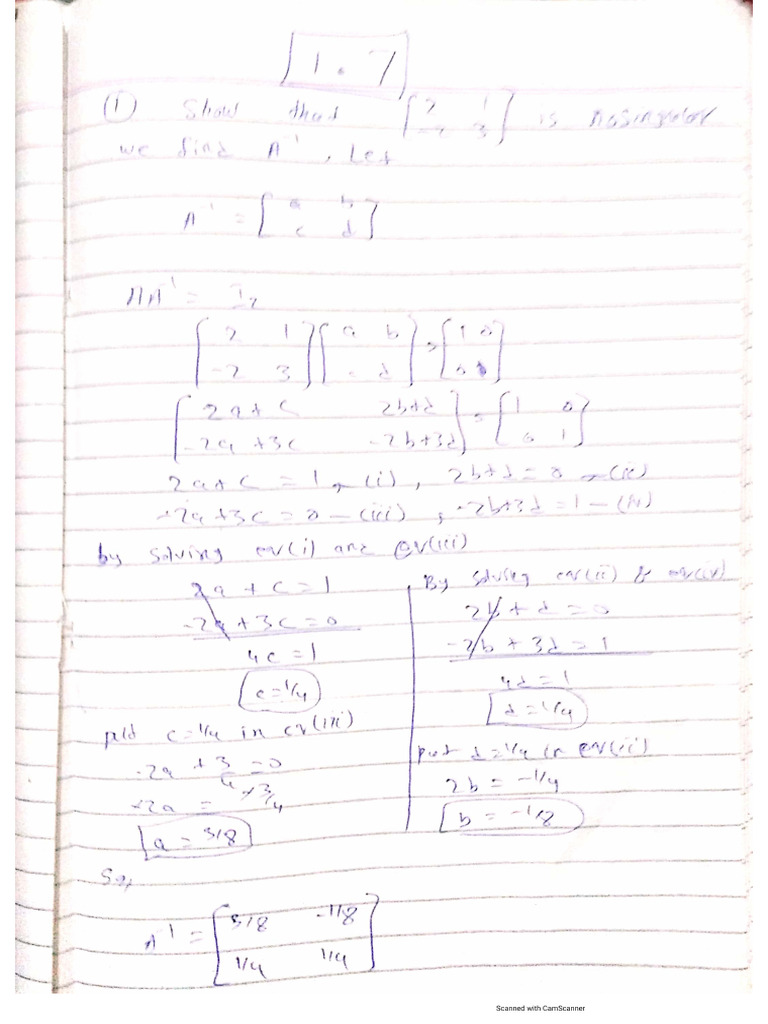 1.7
(1) Show that [2 1 -2 3] is nosingular
we find A⁻¹, Let
A⁻¹ = [a b c d]
AA⁻¹ = I₂
[2 1 -2 3] [a b c d] = [1 0 0 1]
[2a+c 2b+d -2a+3c -2b+3d] = [1 0 0 1]
2a+c = 1 —(i), 2b+d = 0 —(ii)
-2a+3c = 0 —(iii), -2b+3d = 1 —(iv)
by solving eq(i) and eq(iii)
2a + c = 1
-2a + 3c = 0
4c = 1
c = 1/4
put c = 1/4 in eq(iii)
-2a + 3/4 = 0
+2a = +3/4
a = 3/8
By solving eq(ii) & eq(iv)
2b + d = 0
-2b + 3d = 1
4d = 1
d = 1/4
put d = 1/4 in eq(ii)
2b = -1/4
b = -1/8
So,
A⁻¹ = [3/8 -1/8 1/4 1/4]
Scanned with CamScanner